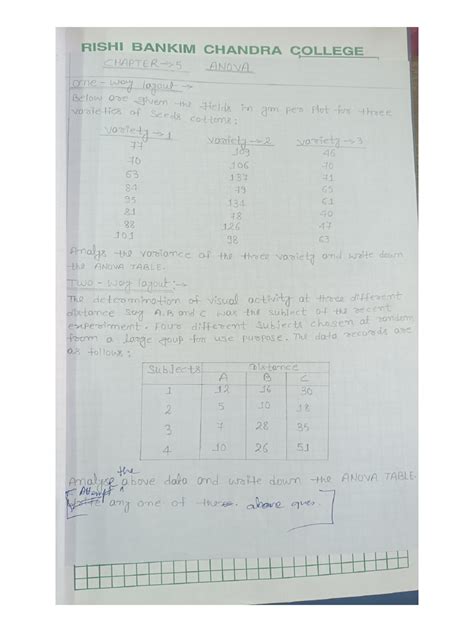 RISHI BANKIM CHANDRA COLLEGE
CHAPTER → 5 ANOVA
one - way layout :→
Below are given the fields in gm per plot for three
varieties of seeds cottons :
variety → 1 variety → 2 variety → 3
77 109 46
70 106 70
63 137 71
84 79 65
95 134 61
81 78 40
88 126 47
101 98 63
Analys the variance of the three variety and write down
the ANOVA TABLE.
Two - way layout :→
The determination of visual activity at three different
distance say A, B and C was the subject of the recent
experiment. Four different subjects chosen at random
from a large group for use purpose. The data records are
as follows :
Subjects Distance
A B C
1 12 16 30
2 5 10 18
3 7 28 35
4 10 26 51
the
Analyse above data and write down the ANOVA TABLE.
Attempt
any one of above ques.